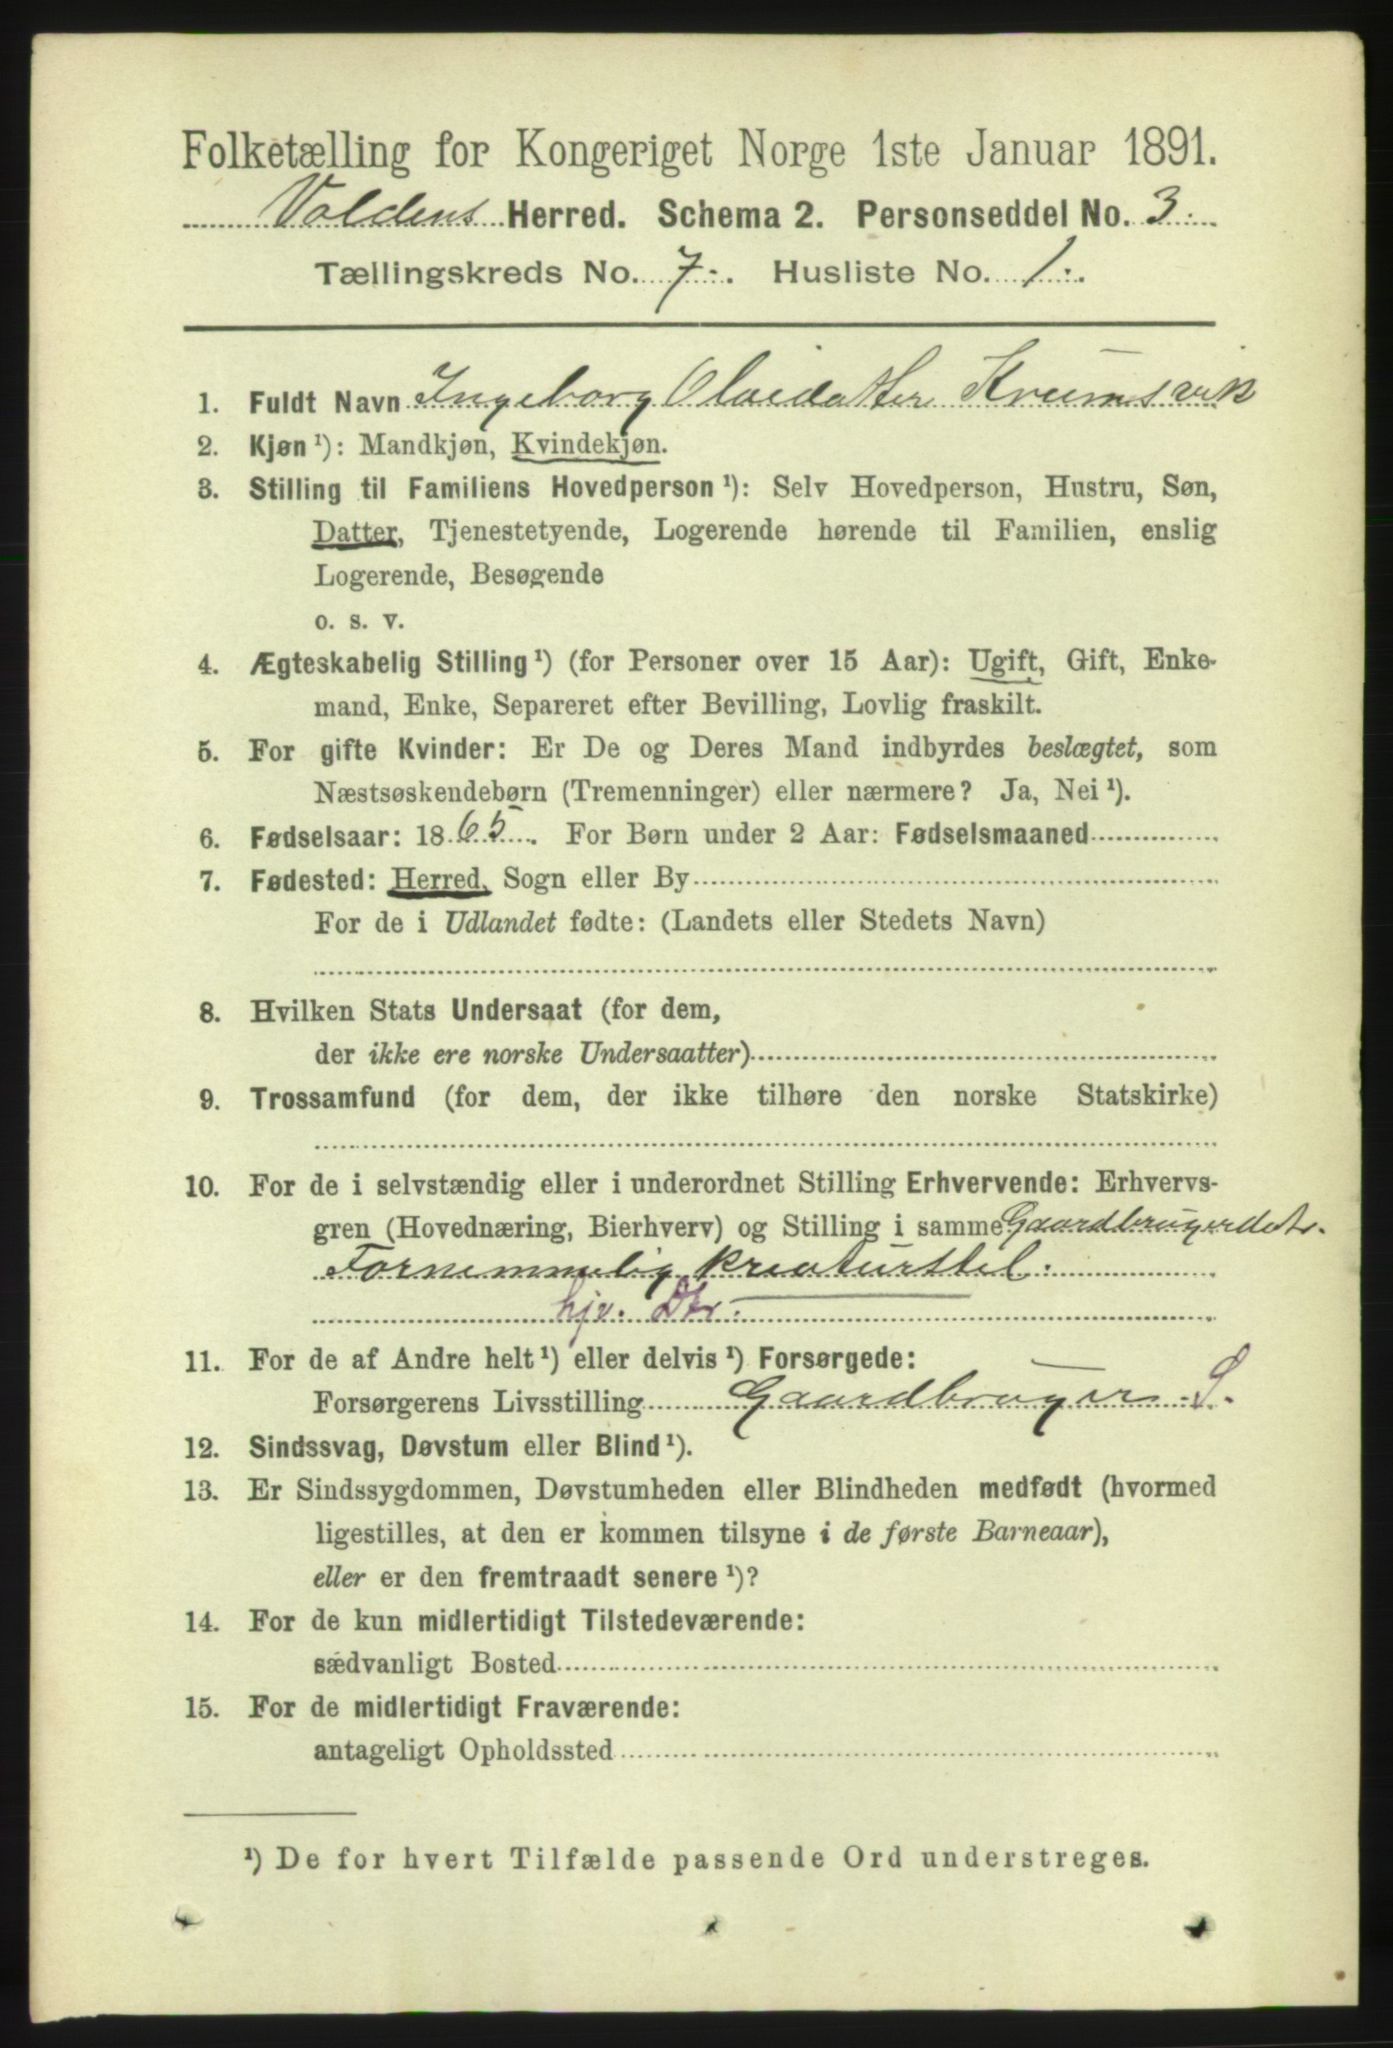 Folketælling for Kongeriget Norge 1ste Januar 1891.
Voldens Herred. Schema 2. Personseddel No. 3.
Tællingskreds No. 7. Husliste No. 1.
1. Fuldt Navn Ingeborg Olaidatter Krumsvik
2. Kjøn ¹): Mandkjøn, Kvindekjøn.
3. Stilling til Familiens Hovedperson ¹): Selv Hovedperson, Hustru, Søn,
Datter, Tjenestetyende, Logerende hørende til Familien, enslig
Logerende, Besøgende
o. s. v.
4. Ægteskabelig Stilling ¹) (for Personer over 15 Aar): Ugift, Gift, Enke-
mand, Enke, Separeret efter Bevilling, Lovlig fraskilt.
5. For gifte Kvinder: Er De og Deres Mand indbyrdes beslægtet, som
Næstsøskendebørn (Tremenninger) eller nærmere? Ja, Nei ¹).
6. Fødselsaar: 1865. For Børn under 2 Aar: Fødselsmaaned
7. Fødested: Herred, Sogn eller By
For de i Udlandet fødte: (Landets eller Stedets Navn)
8. Hvilken Stats Undersaat (for dem,
der ikke ere norske Undersaatter)
9. Trossamfund (for dem, der ikke tilhøre den norske Statskirke)
10. For de i selvstændig eller i underordnet Stilling Erhvervende: Erhvervs-
gren (Hovednæring, Bierhverv) og Stilling i samme Gaardbrugerdatr.
Fornemmelig kreaturstel.
hjv. Dtr.
11. For de af Andre helt ¹) eller delvis ¹) Forsørgede:
Forsørgerens Livsstilling Gaardbruger S.
12. Sindssvag, Døvstum eller Blind ¹).
13. Er Sindssygdommen, Døvstumheden eller Blindheden medfødt (hvormed
ligestilles, at den er kommen tilsyne i de første Barneaar),
eller er den fremtraadt senere ¹)?
14. For de kun midlertidigt Tilstedeværende:
sædvanligt Bosted
15. For de midlertidigt Fraværende:
antageligt Opholdssted
¹) De for hvert Tilfælde passende Ord understreges.